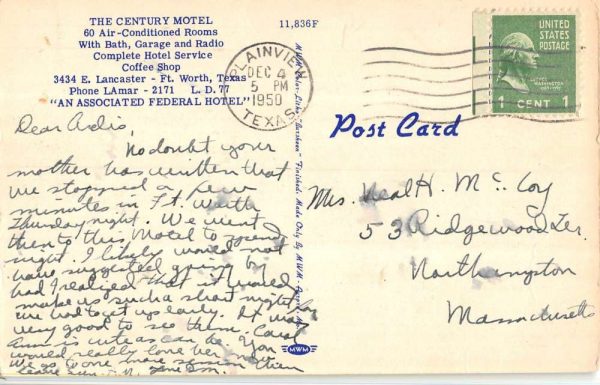 THE CENTURY MOTEL
60 Air-Conditioned Rooms
With Bath, Garage and Radio
Complete Hotel Service
Coffee Shop
3434 E. Lancaster - Ft. Worth, Texas
Phone LAmar - 2171 L. D. 77
"AN ASSOCIATED FEDERAL HOTEL"
11,836F
PLAINVIEW
DEC 4
5 PM
1950
TEXAS
UNITED
STATES
POSTAGE
1 CENT 1
Post Card
Dear Ardis,
No doubt your
mother has written that
we stopped a few
minutes in Ft. Worth
Thursday night. We went
then to this Motel to spend
night. I likely would not
have suggested going by
had I realized that it would
make us such a short night
we had to get up early. It was
very good to see them. Carol
Ann is cute as can be. You
would really love her
more
Mrs. Neal H. McCoy
53 Ridgewood Ter.
Northampton
Massachusetts
MWM